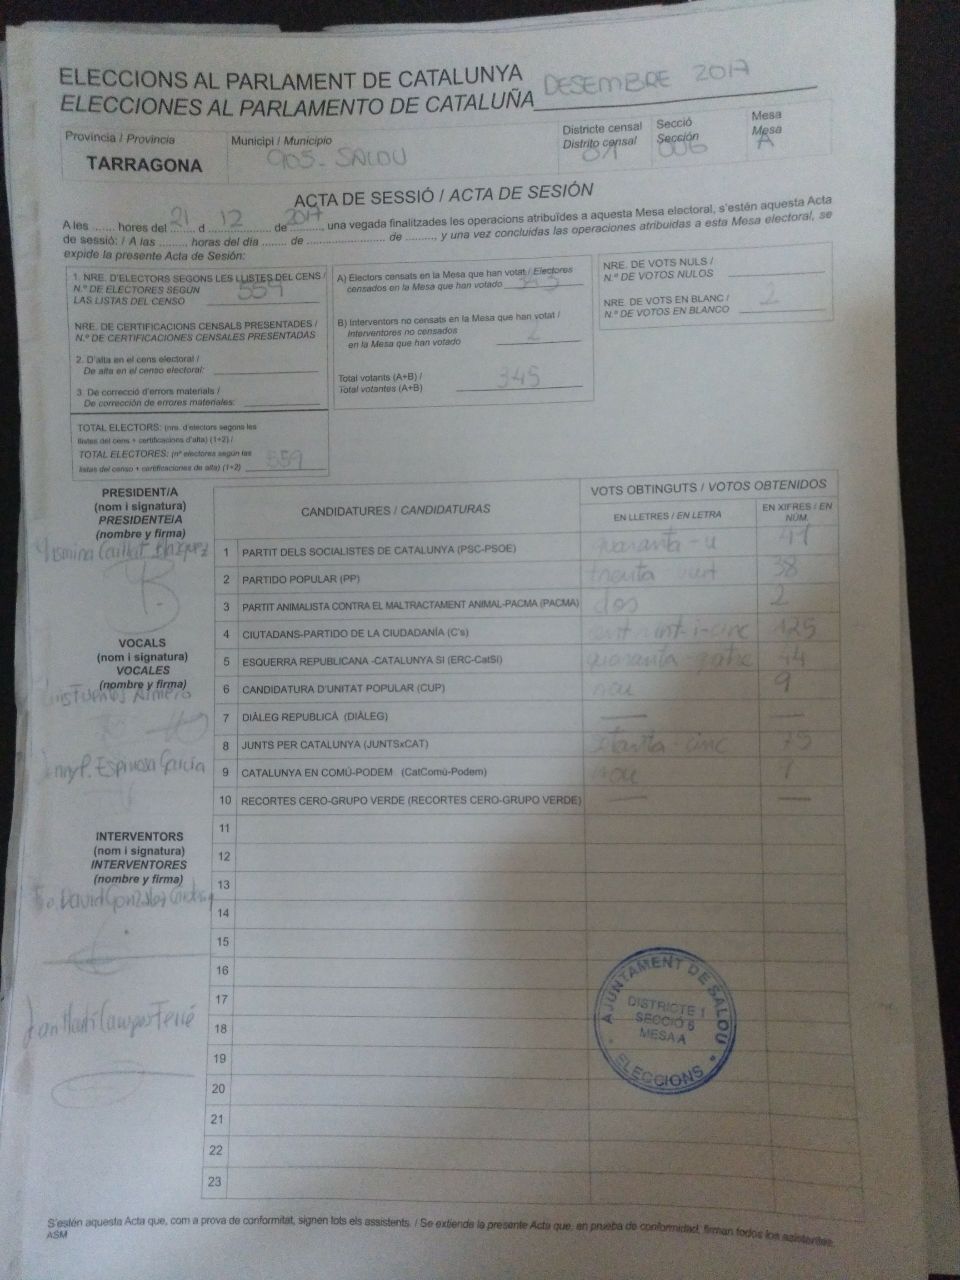 ELECCIONS AL PARLAMENT DE CATALUNYA
ELECCIONES AL PARLAMENTO DE CATALUÑA DESEMBRE 2017
Provincia / Provincia
TARRAGONA
Municipi / Municipio
905 - SALOU
Districte censal
Distrito censal
01
Secció
Sección
006
Mesa
Mesa
A
ACTA DE SESSIÓ / ACTA DE SESIÓN
A les ....... hores del 21 d 12 de 2017, una vegada finalitzades les operacions atribuïdes a aquesta Mesa electoral, s'estén aquesta Acta
de sessió: / A las ......... horas del día ....... de ........................ de ........., y una vez concluidas las operaciones atribuidas a esta Mesa electoral, se
expide la presente Acta de Sesión:
1. NRE. D'ELECTORS SEGONS LES LLISTES DEL CENS /
N.º DE ELECTORES SEGÚN
LAS LISTAS DEL CENSO 559
NRE. DE CERTIFICACIONS CENSALS PRESENTADES /
N.º DE CERTIFICACIONES CENSALES PRESENTADAS
2. D'alta en el cens electoral /
De alta en el censo electoral:
3. De correcció d'errors materials /
De corrección de errores materiales:
TOTAL ELECTORS: (nre. d'electors segons les
llistes del cens + certificacions d'alta) (1+2) /
TOTAL ELECTORES: (nº electores según las
listas del censo + certificaciones de alta) (1+2) 559
A) Electors censats en la Mesa que han votat / Electores
censados en la Mesa que han votado 343
B) Interventors no censats en la Mesa que han votat /
Interventores no censados
en la Mesa que han votado 2
Total votants (A+B) /
Total votantes (A+B) 345
NRE. DE VOTS NULS /
N.º DE VOTOS NULOS
NRE. DE VOTS EN BLANC /
N.º DE VOTOS EN BLANCO 2
PRESIDENT/A
(nom i signatura)
PRESIDENTE/A
(nombre y firma)
VOCALS
(nom i signatura)
VOCALES
(nombre y firma)
Espinosa García
INTERVENTORS
(nom i signatura)
INTERVENTORES
(nombre y firma)
David González
CANDIDATURES / CANDIDATURAS
VOTS OBTINGUTS / VOTOS OBTENIDOS
EN LLETRES / EN LETRA
EN XIFRES / EN NÚM.
1 PARTIT DELS SOCIALISTES DE CATALUNYA (PSC-PSOE) quaranta-u 41
2 PARTIDO POPULAR (PP) trenta-vuit 38
3 PARTIT ANIMALISTA CONTRA EL MALTRACTAMENT ANIMAL-PACMA (PACMA) dos 2
4 CIUTADANS-PARTIDO DE LA CIUDADANÍA (C's) cent vint-i-cinc 125
5 ESQUERRA REPUBLICANA -CATALUNYA SI (ERC-CatSí) quaranta-quatre 44
6 CANDIDATURA D'UNITAT POPULAR (CUP) nou 9
7 DIÀLEG REPUBLICÀ (DIÀLEG) —— —
8 JUNTS PER CATALUNYA (JUNTSxCAT) setanta-cinc 75
9 CATALUNYA EN COMÚ-PODEM (CatComú-Podem) nou
10 RECORTES CERO-GRUPO VERDE (RECORTES CERO-GRUPO VERDE) —— ——
11
12
13
14
15
16
17
18
19
20
21
22
23
AJUNTAMENT DE SALOU
DISTRICTE 1
SECCIÓ 6
MESA A
ELECCIONS
S'estén aquesta Acta que, com a prova de conformitat, signen tots els assistents. / Se extiende la presente Acta que, en prueba de conformidad, firman todos los asistentes.
ASM